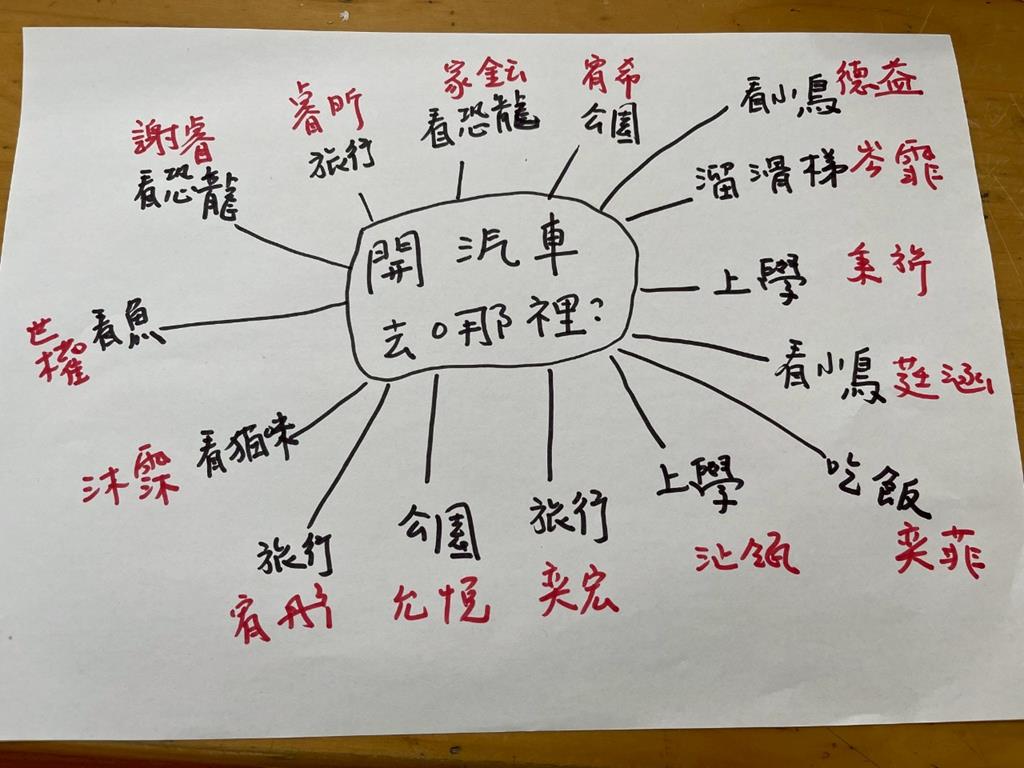 開汽車
去哪裡?
謝睿
看恐龍
睿昕
旅行
家鈜
看恐龍
宥希
公園
看小鳥 德益
溜滑梯 岑霏
上學
看小鳥 莛涵
吃飯
奕菲
上學
旅行
奕宏
公園
允恒
旅行
宥彤
看貓咪
沐霂
看魚
世權